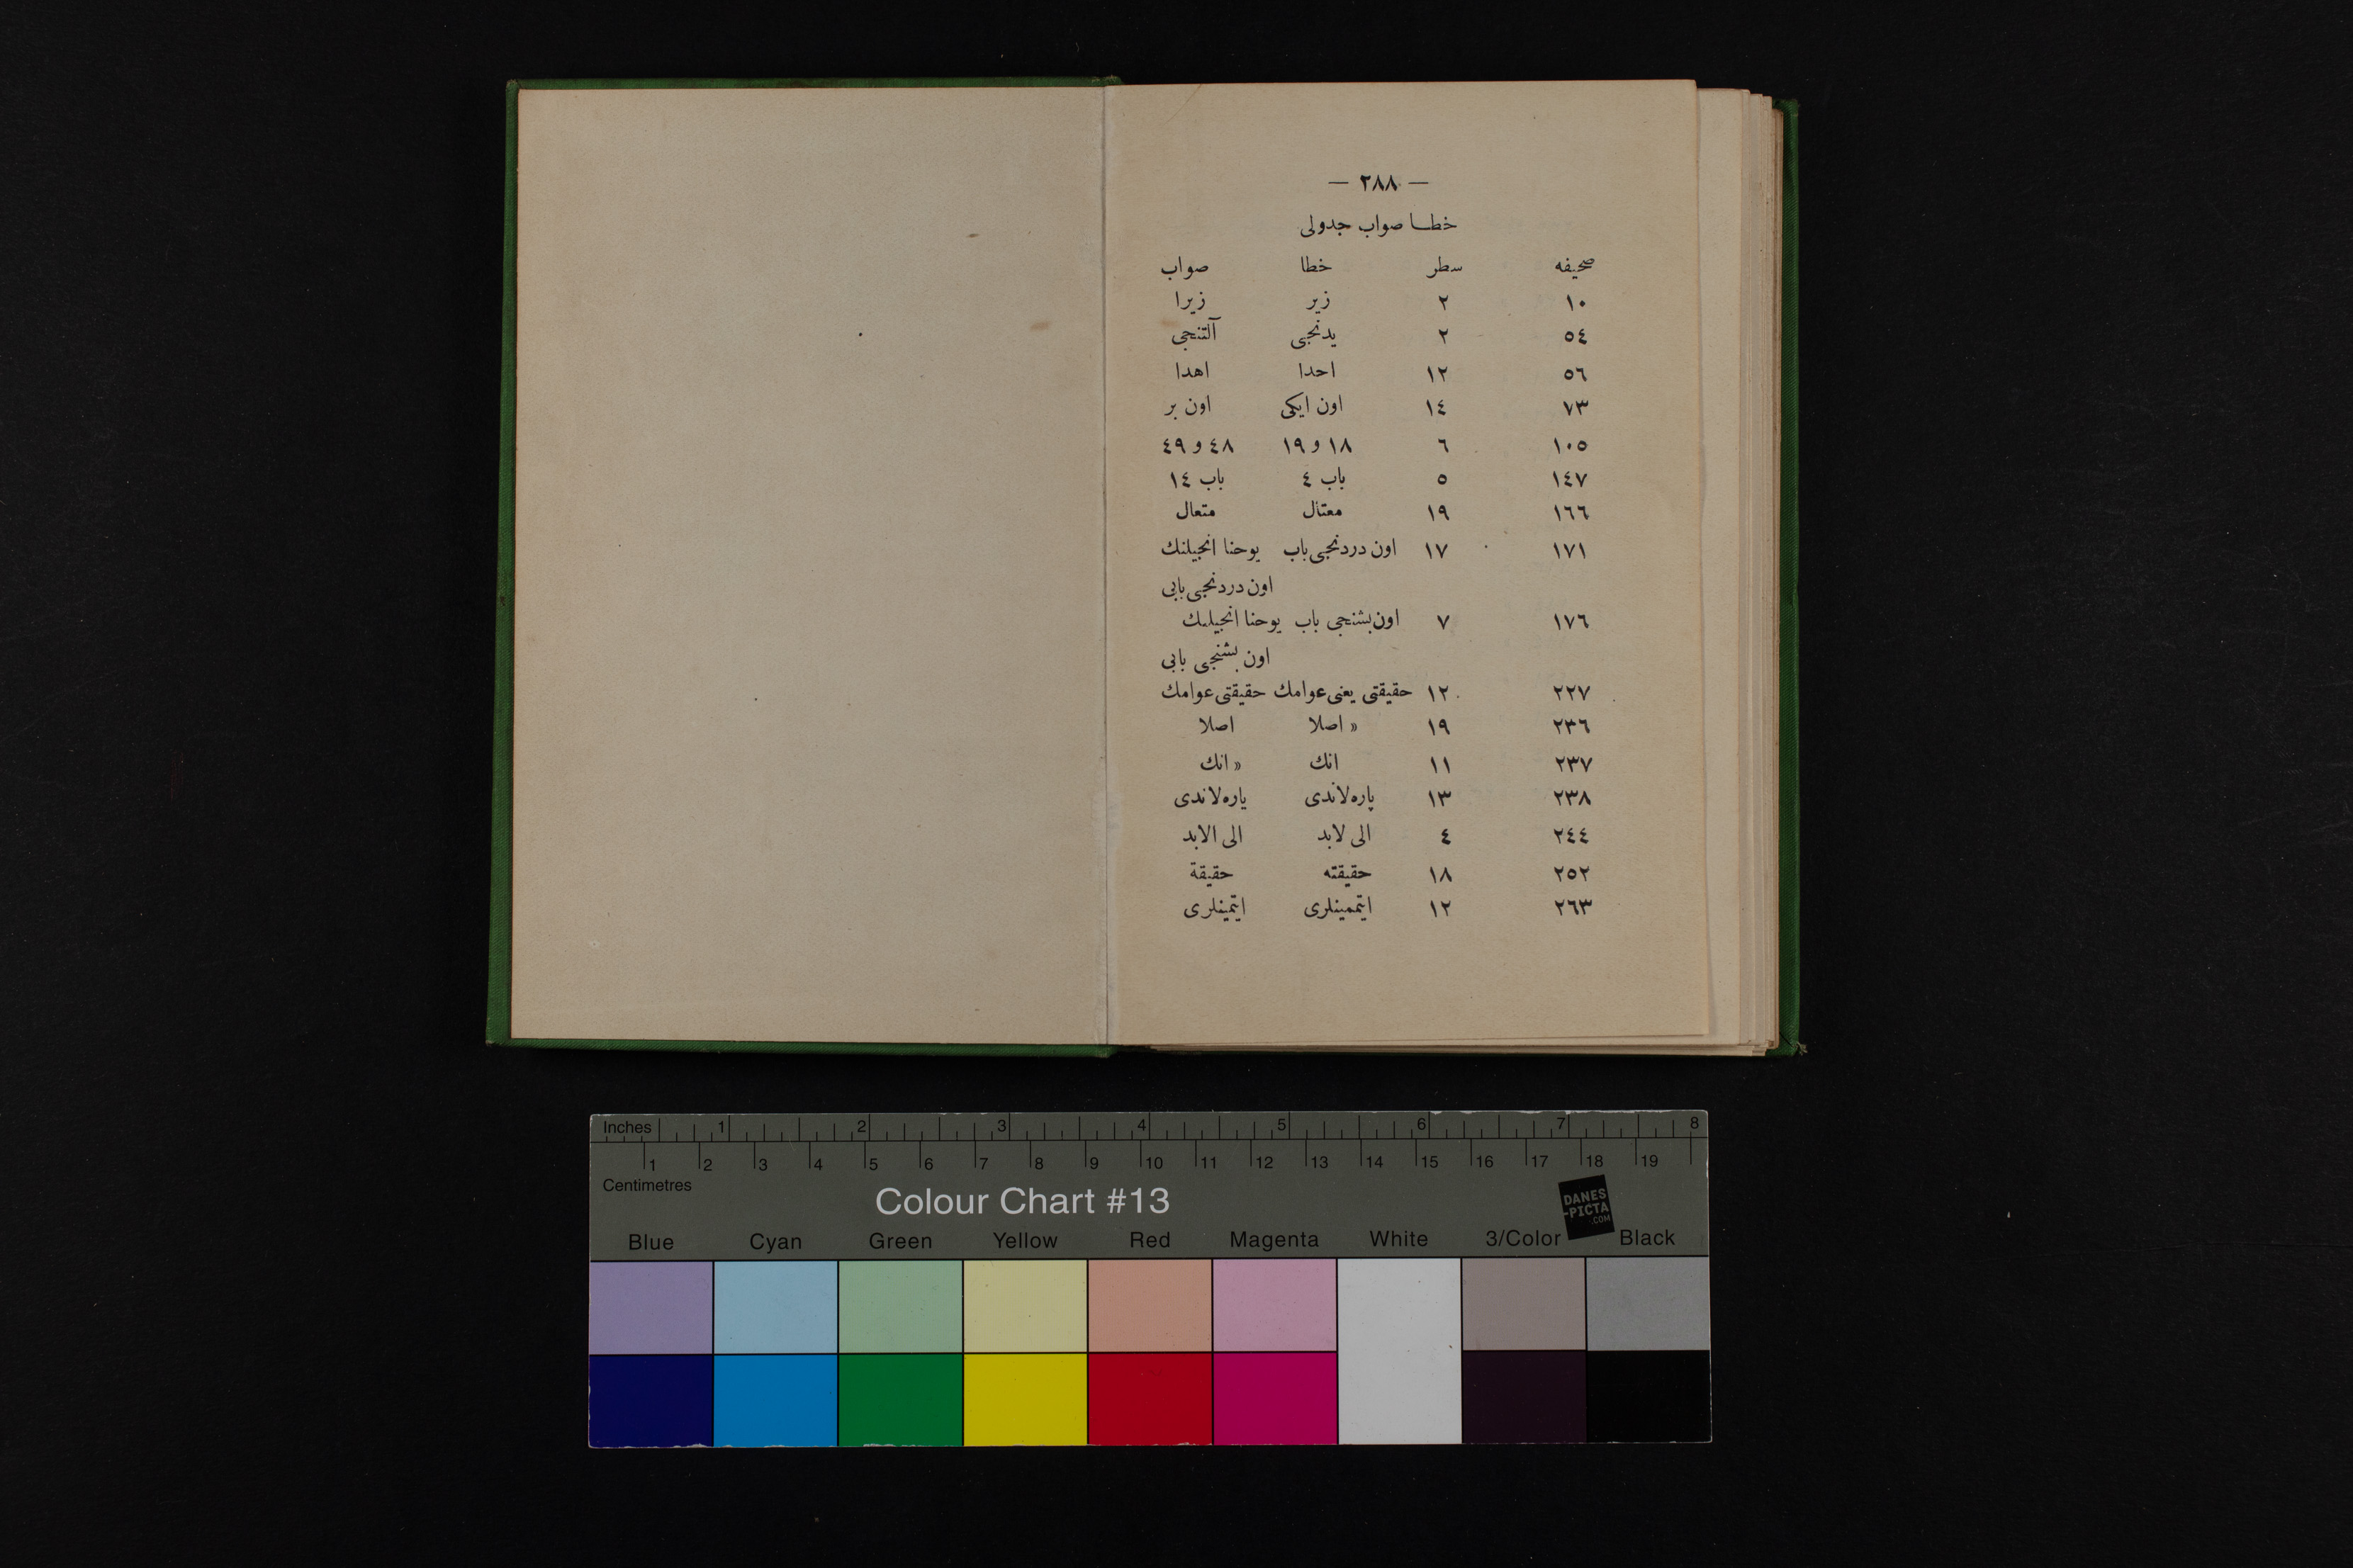 — ٢٨٨ —
خطا صواب جدولی
صحیفه سطر خطا صواب
١٠ ٢ زیر زیرا
٥٤ ٢ یدنجی آلتنجی
٥٦ ١٢ احدا اهدا
٧٣ ١٤ اون ایکی اون بر
١٠٥ ٦ ١٨ و ١٩ ٤٨ و ٤٩
١٤٧ ٥ باب ٤ باب ١٤
١٦٦ ١٩ معتال متعال
١٧١ ١٧ اون دردنجی باب یوحنا انجیلنك
اون دردنجی بابی
١٧٦ ٧ اون بشنجی باب یوحنا انجیلنك
اون بشنجی بابی
٢٢٧ ١٢ حقیقتی یعنی عوامك حقیقتی عوامك
٢٣٦ ١٩ » اصلا اصلا
٢٣٧ ١١ انك » انك
٢٣٨ ١٣ پاره‌لاندی یاره‌لاندی
٢٤٤ ٤ الی لابد الی الابد
٢٥٢ ١٨ حقیقته حقیقة
٢٦٣ ١٢ ایتممینلری ایتمینلری
Inches 1 2 3 4 5 6 7 8
1 2 3 4 5 6 7 8 9 10 11 12 13 14 15 16 17 18 19
Centimetres
Colour Chart #13
DANES
-PICTA
.COM
Blue Cyan Green Yellow Red Magenta White 3/Color Black